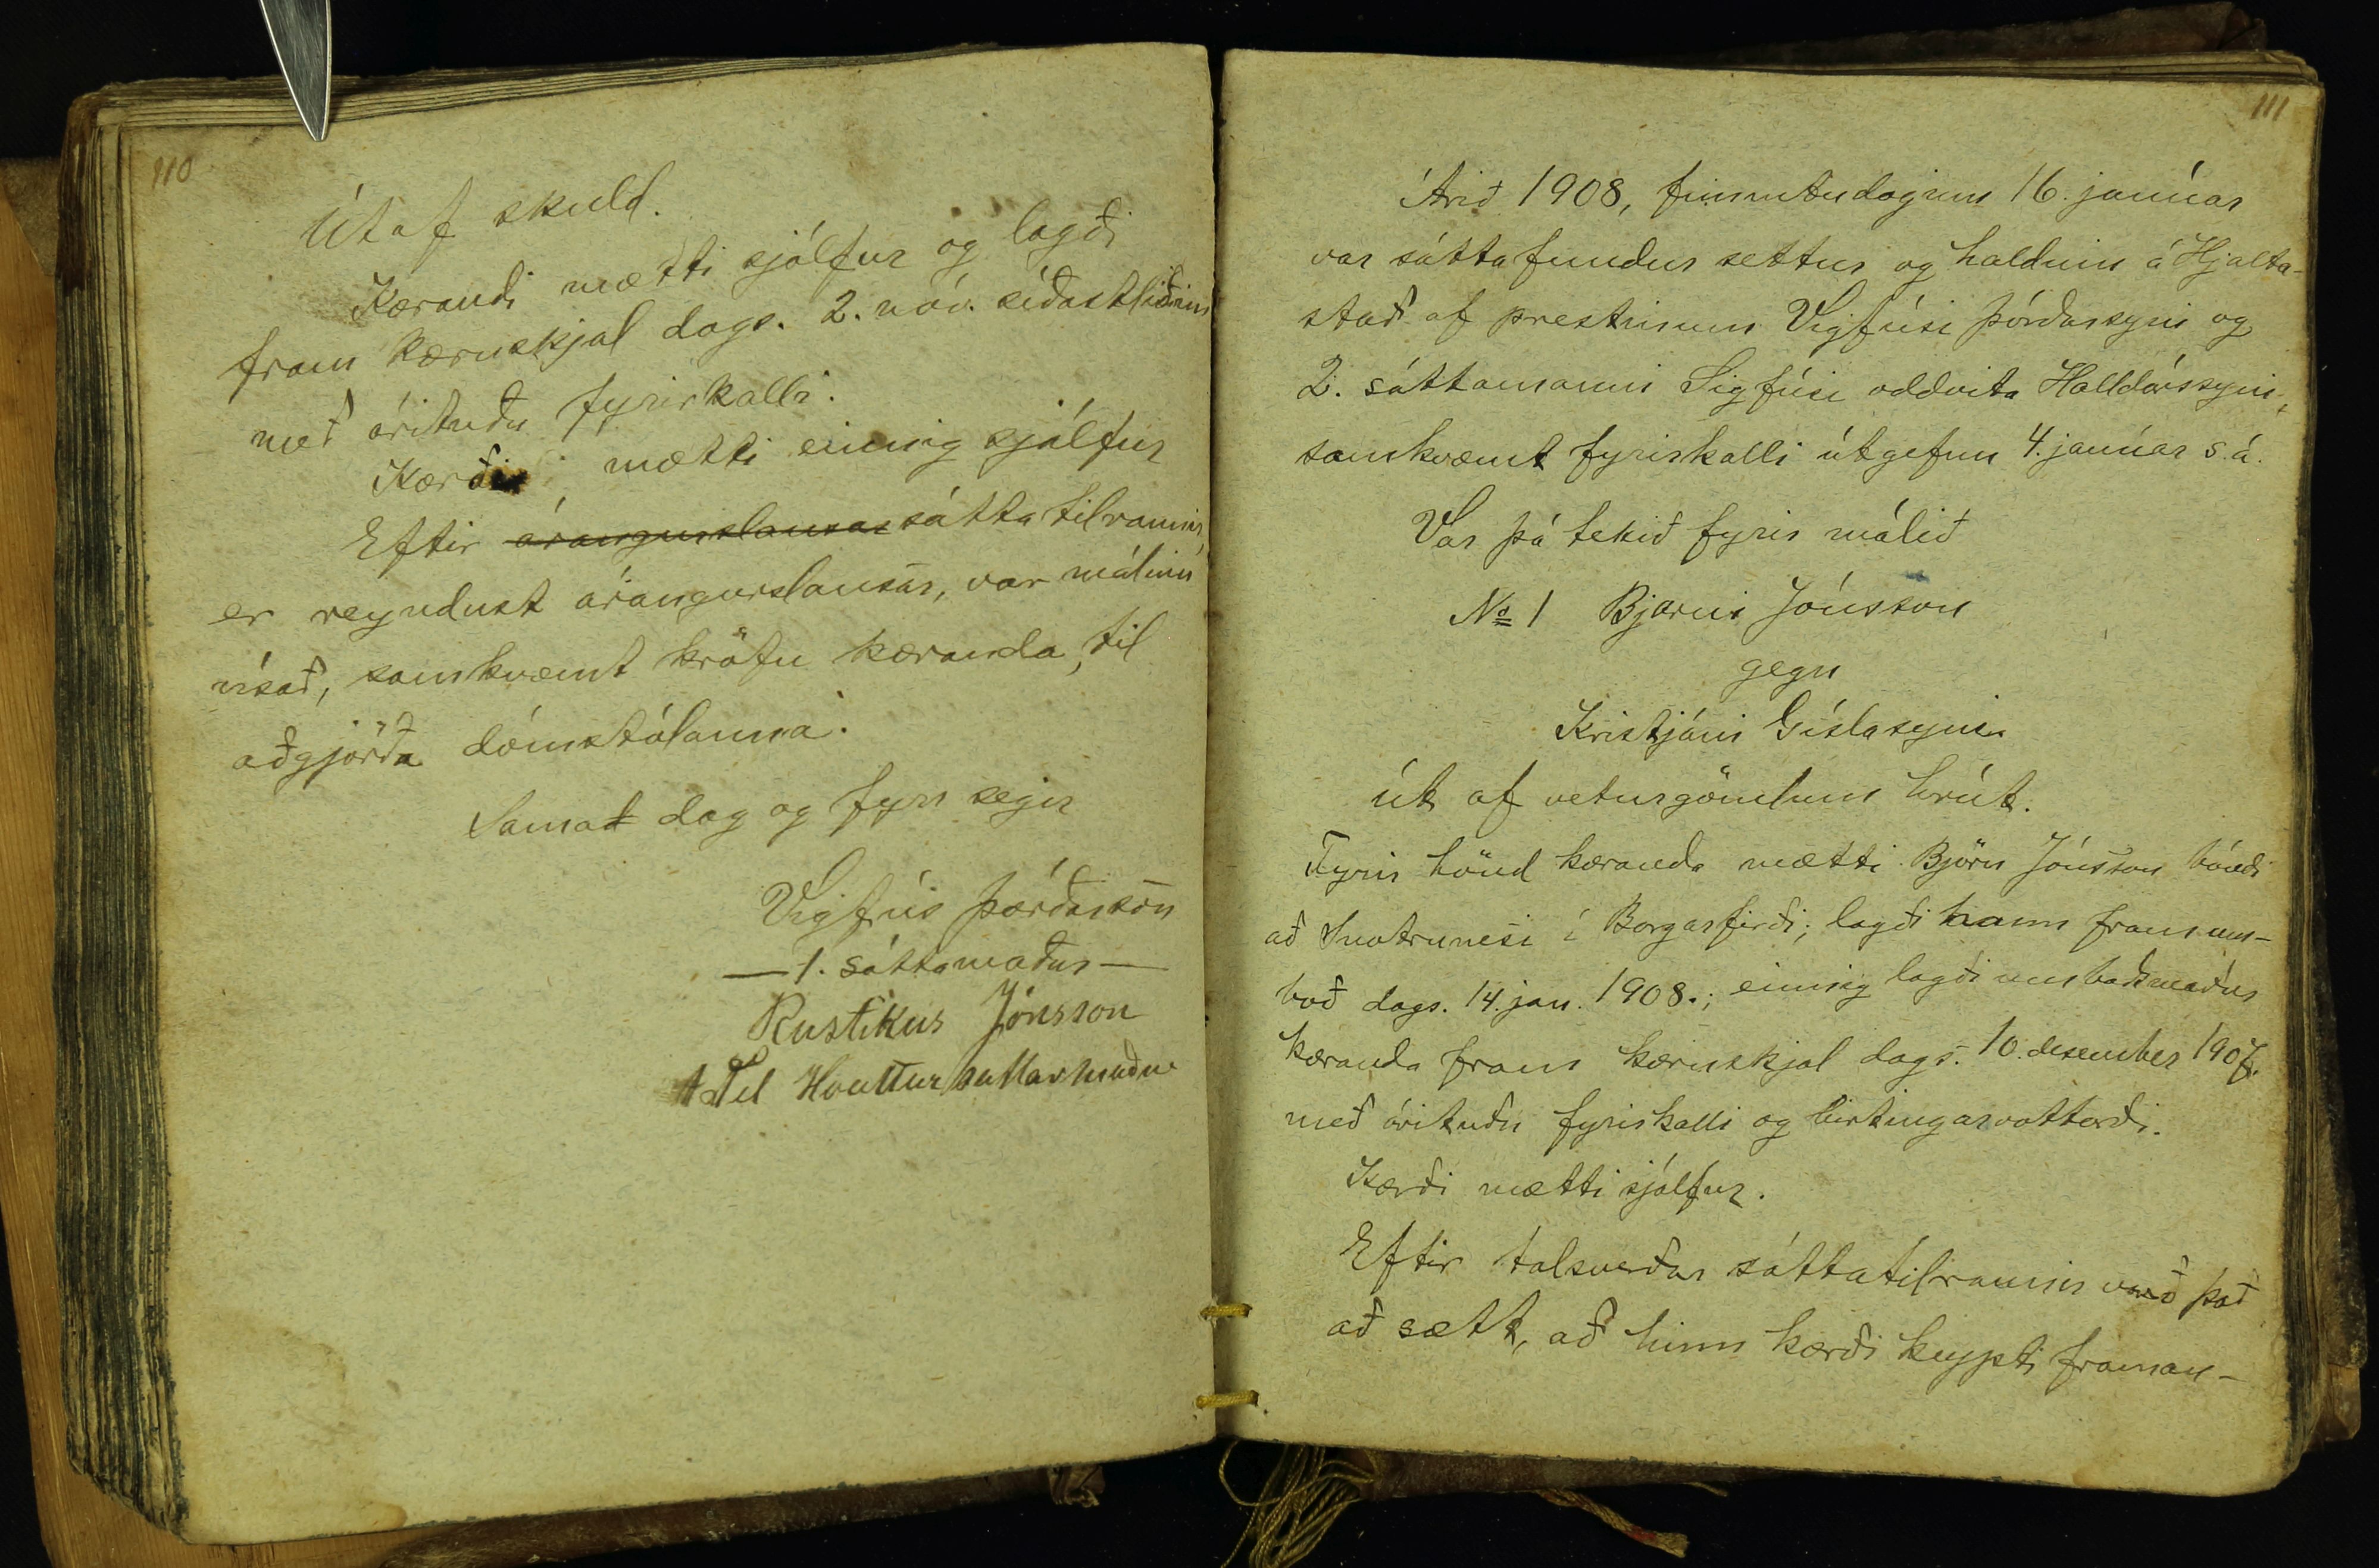 110
Út af skuld.
Kærandi mætti sjálfur og lagði
fram kæruskjal dags. 2. nóv. síðastliðinn
með árituðu fyrirkalli.
Kærði, mætti einnig sjálfur
Eftir árangurslausar sáttatilraunir,
er reyndust árangurslausar, var málinu
vísað, samkvæmt kröfu kæranda, til
aðgjörða dómstólanna.
Samad dag og fyr segir
Vigfús Þórðarson
— 1. sáttamaður —
Rustikus Jónsson
Til Hvattur sattarmaður
111
Árið 1908, fimmtudaginn 16. janúar
var sáttafundur settur og haldinn á Hjalta-
stað af prestinum Vigfúsi Þórðarsyni og
2. sáttamanni Sigfúsi oddvita Halldórssyni,
samkvæmt fyrirkalli útgefnu 4. janúar s.á.
Var þá tekið fyrir málið
No 1 Bjarni Jónsson
gegn
Kristjáni Gíslasyni
út af veturgömlum hrút.
Fyrir hönd kæranda mætti Björn Jónsson bóndi
að Snotrunesi í Borgarfirði; lagði hann fram um-
boð dags. 14. jan. 1908.; einnig lagði umboðsmaður
kæranda fram kæruskjal dags. 10. desember 1907.
með árituðu fyrirkalli og birtingarvottorði.
Kærði mætti sjálfur.
Eftir talsverðar sáttatilraunir varð það
að sætt, að hinn kærði keypti framan-